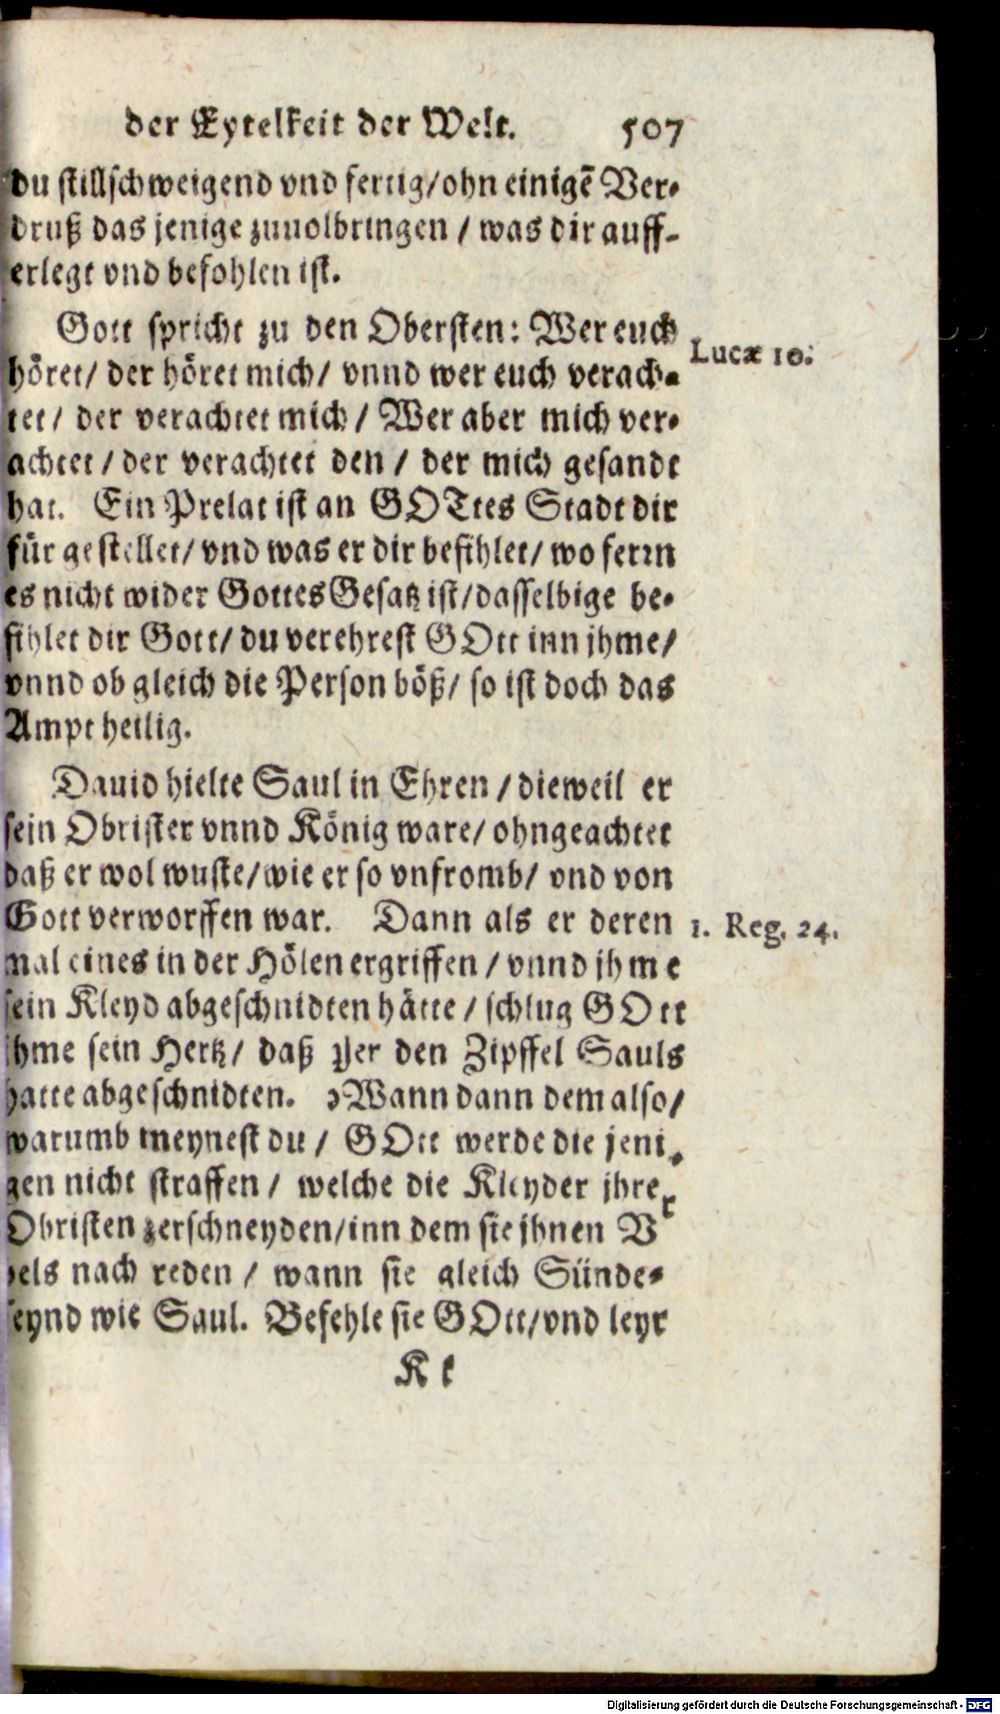 der Eytelkeit der Welt. 507
du stillschweigend vnd fertig/ohn einigē Ver-
druß das jenige zuuolbringen / was dir auff-
erlegt vnd befohlen ist.
Gott spricht zu den Obersten: Wer euch
Lucæ 10.
höret/ der höret mich/ vnnd wer euch verach-
tet/ der verachtet mich / Wer aber mich ver-
achtet / der verachtet den / der mich gesandt
hat. Ein Prelat ist an GOTtes Stadt dir
für gestellet/ vnd was er dir befihlet/ wo ferrn
es nicht wider Gottes Gesatz ist/dasselbige be-
fihlet dir Gott/ du verehrest GOtt inn jhme/
vnnd ob gleich die Person böß/ so ist doch das
Ampt heilig.
Dauid hielte Saul in Ehren / dieweil er
sein Obrister vnnd König ware/ ohngeachtet
daß er wol wuste/wie er so vnfromb/ vnd von
Gott verworffen war. Dann als er deren
1. Reg. 24.
mal eines in der Hölen ergriffen / vnnd jhme
sein Kleyd abgeschnidten hätte / schlug GOtt
ihme sein Hertz/ daß er den Zipffel Sauls
hatte abgeschnidten. Wann dann dem also/
warumb meynest du / GOtt werde die jeni-
gen nicht straffen / welche die Kleyder jhrer
Obristen zerschneyden/inn dem sie jhnen V
bels nach reden / wann sie gleich Sünde-
seynd wie Saul. Befehle sie GOtt/vnd leyr
Kk
Digitalisierung gefördert durch die Deutsche Forschungsgemeinschaft - DFG